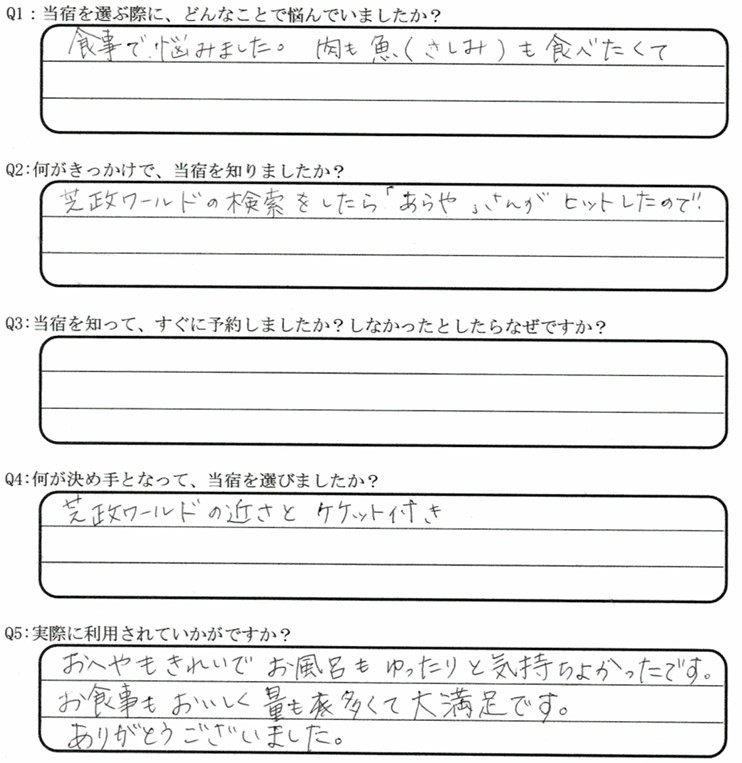 Q1：当宿を選ぶ際に、どんなことで悩んでいましたか？
食事で悩みました。 肉も魚(さしみ)も食べたくて
Q2:何がきっかけで、当宿を知りましたか？
芝政ワールドの検索をしたら「あらや」さんが ヒットしたので!
Q3:当宿を知って、すぐに予約しましたか？しなかったとしたらなぜですか？
Q4:何が決め手となって、当宿を選びましたか？
芝政ワールドの近さと ケケット付き
Q5:実際に利用されていかがですか？
おへやもきれいで お風呂も ゆったりと気持ちよかったです。
お食事も おいしく 量も多くて大満足です。
ありがとうございました。